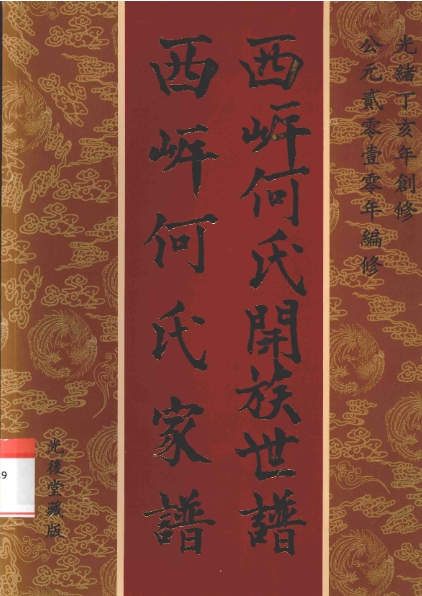 光緒丁亥年創修
公元貳零壹零年編修
西岞何氏開族世譜
西岞何氏家譜
光後堂藏版